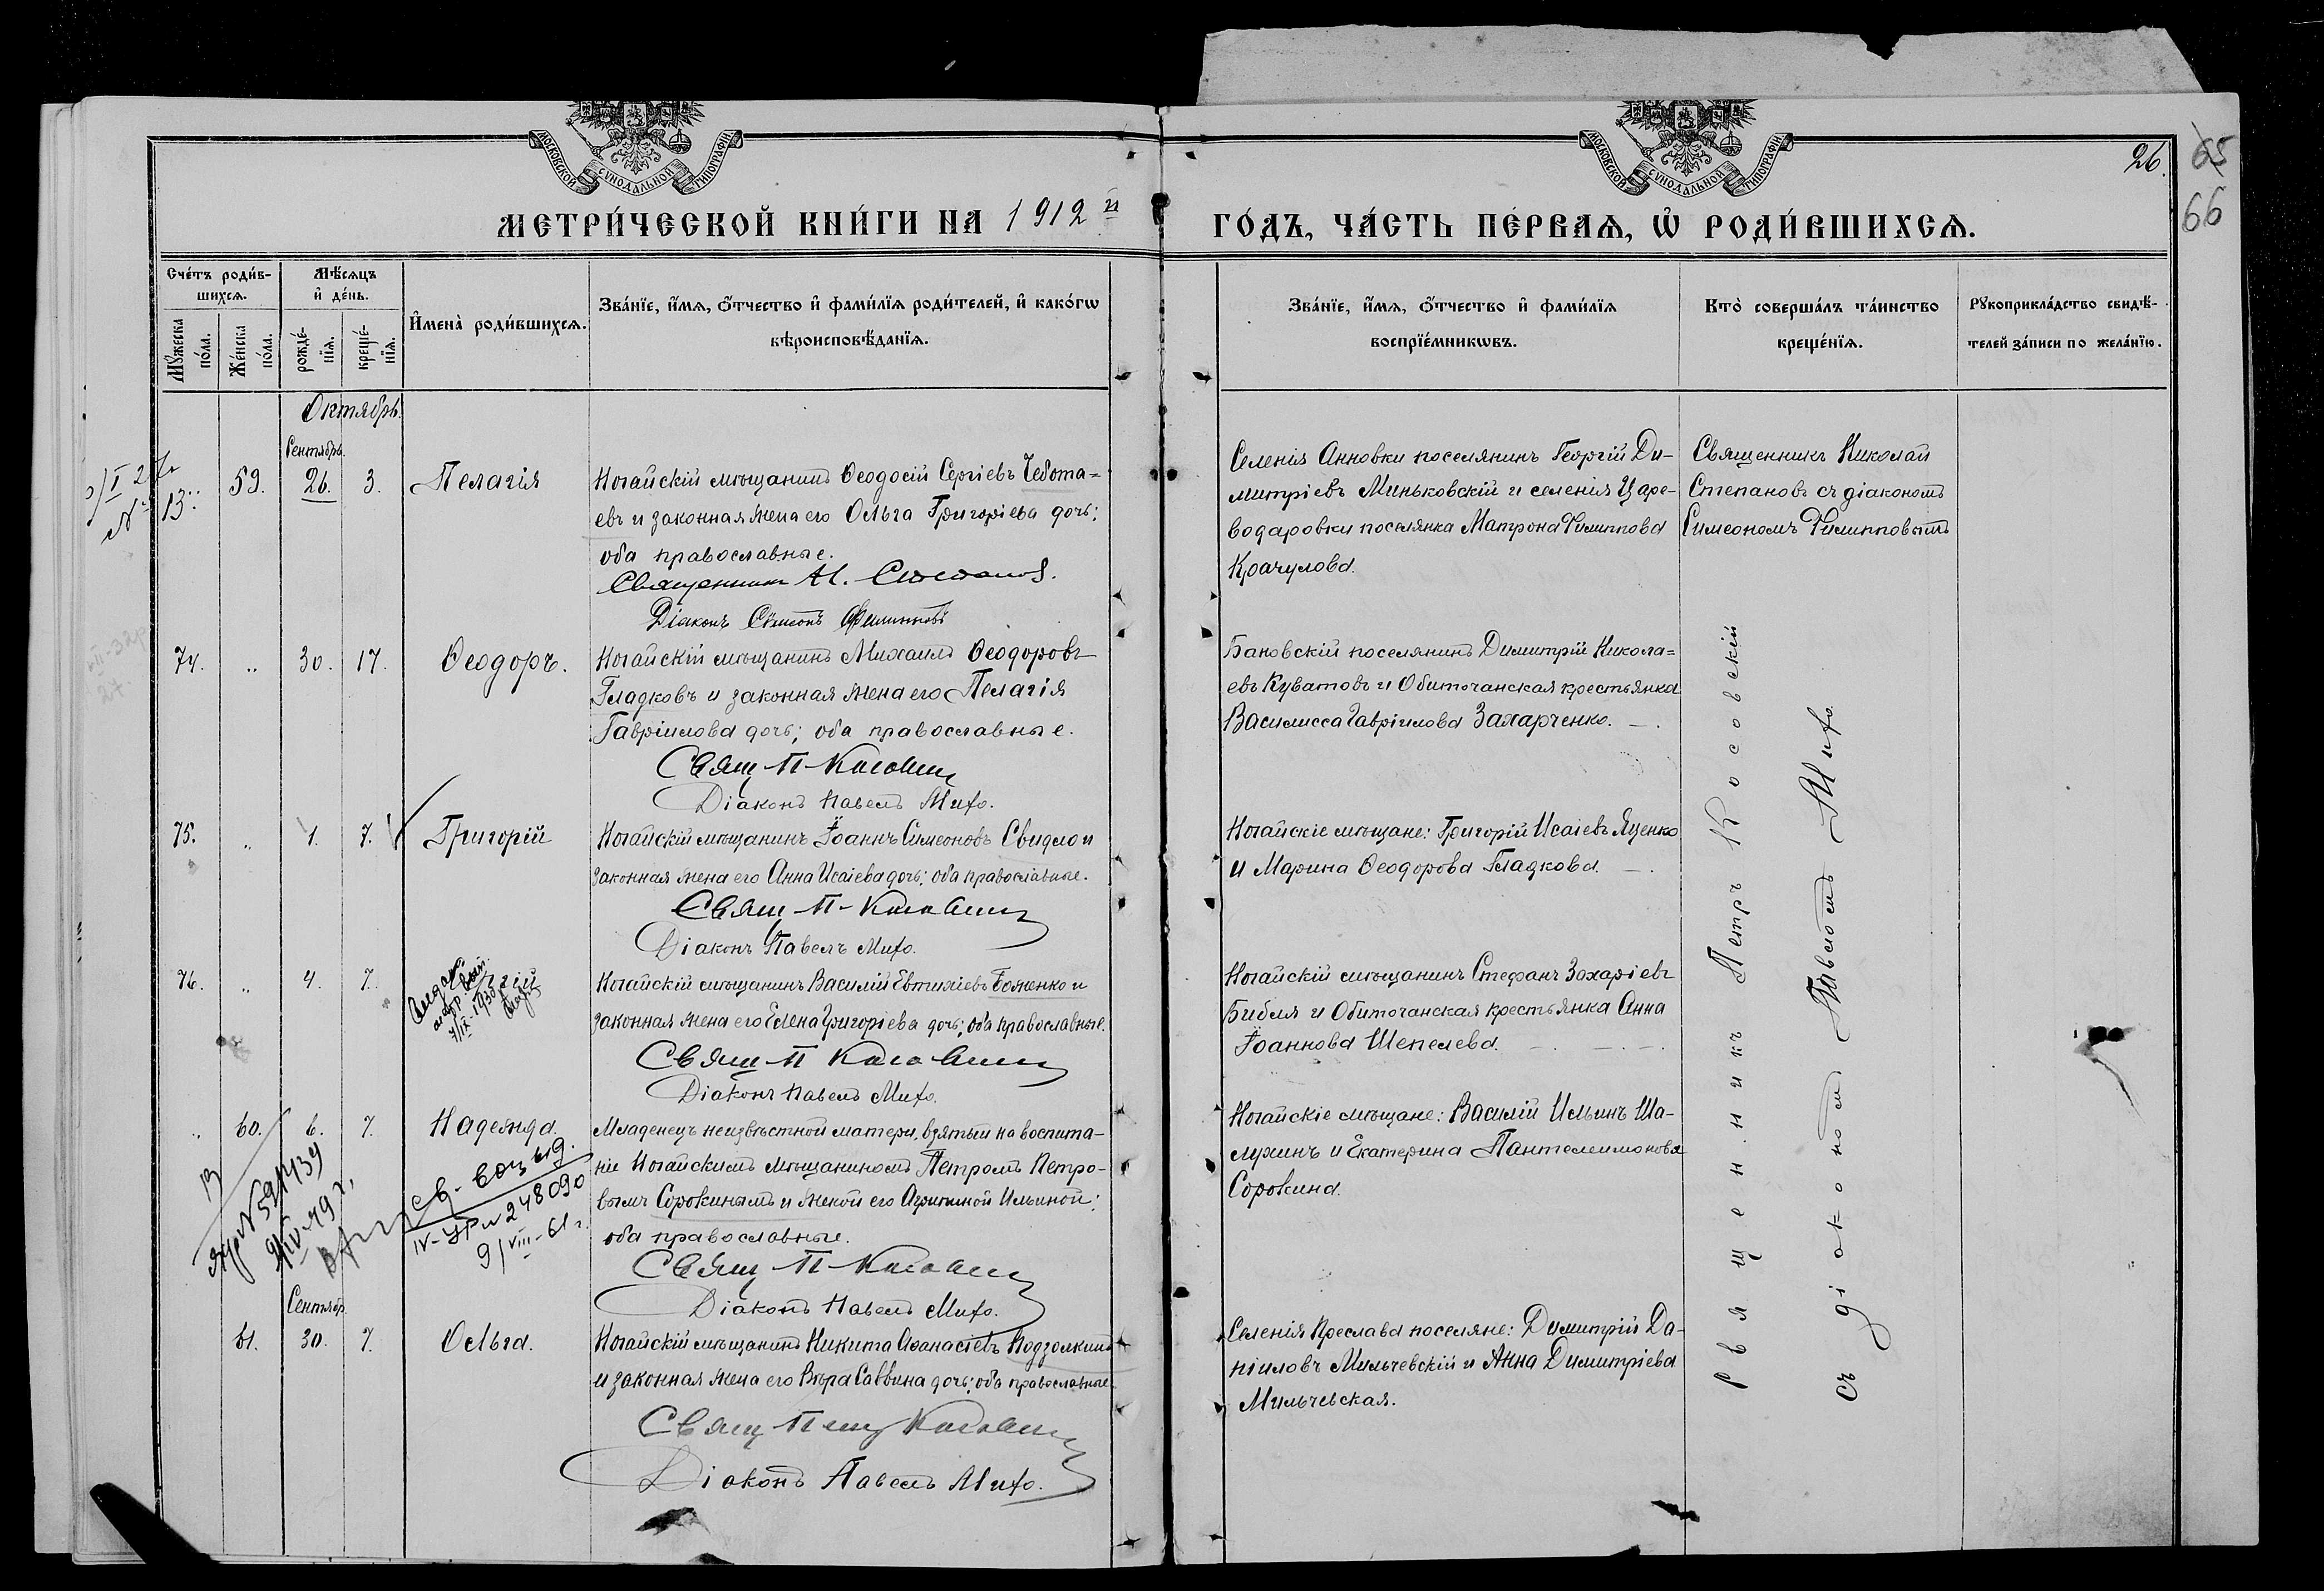 МОСКОВСКОЙ СУНОДАЛЬНОЙ ТИПОГРАФІИ
МОСКОВСКОЙ СУНОДАЛЬНОЙ ТИПОГРАФІИ
26. 65
66
МЕТРИ́ЧЕСКОЙ КНИ́ГИ НА 1912й
ГО́ДЪ, ЧА́СТЬ ПЕ́РВАѦ, Ѡ҆ РОДИ́ВШИХСѦ.
Сче́тъ роди́в-
шихсѧ.
Мꙋ́жеска по́ла.
Же́нска по́ла.
Мѣ́сѧцъ
и҆ де́нь.
рожде́-
нїѧ.
креще́-
нїѧ.
И҆мена̀ роди́вшихсѧ.
Зва́нїе, и҆́мѧ, ѻ҆́тчество и҆ фами́лїѧ роди́телей, и҆ како́гѡ
вѣроисповѣ́данїѧ.
Зва́нїе, и҆́мѧ, ѻ҆́тчество и҆ фами́лїѧ
воспрїе́мникѡвъ.
Кто̀ соверша́лъ та́инство
креще́нїѧ.
Рꙋкоприкла́дство свидѣ́-
телей за́писи по жела́нїю.
Октябрь.
Сентябрь.
59. 26. 3. Пелагія
Ногайскій мѣщанинъ Ѳеодосій Сергіевъ Чебота=
евъ и законная жена его Ольга Григоріева дочь;
оба православные.
Священникъ Н. Степанов.
Діаконъ Симеонъ Филипповъ
Селенія Анновки поселянинъ Георгій Ди-
митріевъ Миньковскій и селенія Царе-
водаровки поселянка Матрона Филиппова
Крачулова.
Священникъ Николай
Степановъ съ діакономъ
Симеономъ Филипповымъ
74. „ 30. 17. Ѳеодоръ.
Ногайскій мѣщанинъ Михаилъ Ѳеодоровъ
Гладковъ и законная жена его Пелагія
Гавріилова дочь; оба православные.
Свящ. П. Косовскій
Діаконъ Павелъ Михо.
Бановскій поселянинъ Димитрій Никола=
евъ Куватовъ и Обиточанская крестьянка
Василисса Гавріилова Захарченко. —.
75. „ 1. 7. Григорій
Ногайскій мѣщанинъ Іоаннъ Симеоновъ Свидло и
законная жена его Анна Исаіева дочь; оба православные.
Свящ. П. Косовскій
Діаконъ Павелъ Михо.
Ногайскіе мѣщане: Григорій Исаіевъ Яценко
и Марина Ѳеодорова Гладкова. —.
76. „ 4. 7.
7/IX-1930
Ногайскій мѣщанинъ Василій Евтихіевъ Боженко и
законная жена его Елена Григоріева дочь; оба православные.
Свящ. П. Косовскій
Діаконъ Павелъ Михо.
Ногайскій мѣщанинъ Стефанъ Захаріевъ
Библя и Обиточанская крестьянка Анна
Іоаннова Шепелева. —.—.—.
„ 60. 6. 7. Надежда.
Младенецъ неизвѣстной матери, взятый на воспита-
ніе Ногайскимъ мѣщаниномъ Петромъ Петро-
вымъ Сорокинымъ и женой его Агрипиной Ильиной;
оба православные.
Свящ. П. Косовскій
Діаконъ Павелъ Михо.
IV-УР № 248090
9/VIII-61 г.
Ногайскіе мѣщане: Василій Ильинъ Ша-
лухинъ и Екатерина Пантелеимонова
Сорокина.
Сентябр.
61. 30. 7. Ольга.
Ногайскій мѣщанинъ Никита Аѳанасіевъ Подзолкинъ
и законная жена его Вѣра Саввина дочь; оба православные.
Свящ. Петръ Косовскій
Діаконъ Павелъ Михо.
Селенія Преслава поселяне: Димитрій Да-
ніиловъ Мильчевскій и Анна Димитріева
Мильчевская.
Священникъ Петръ Косовскій
съ діакономъ Павломъ Михо.